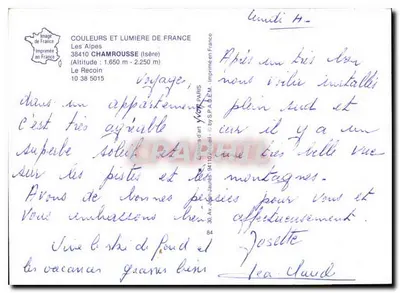 lundi 4.
COULEURS ET LUMIERE DE FRANCE
Les Alpes
38410 CHAMROUSSE (Isère)
(Altitude : 1.650 m - 2.250 m)
Le Recoin
10 38 5015
Image de France
Imprimée en France
Après un très bon
voyage, nous voilà installés
dans un appartement plein sud et
c'est très agréable car il y a un
superbe soleil et une très belle vue
sur les pistes et les montagnes.
Avons de bonnes pensées pour vous et
vous embrassons bien affectueusement.
Josette
Vive le ski de fond et
les vacances
Jea Claude
imprimé en France